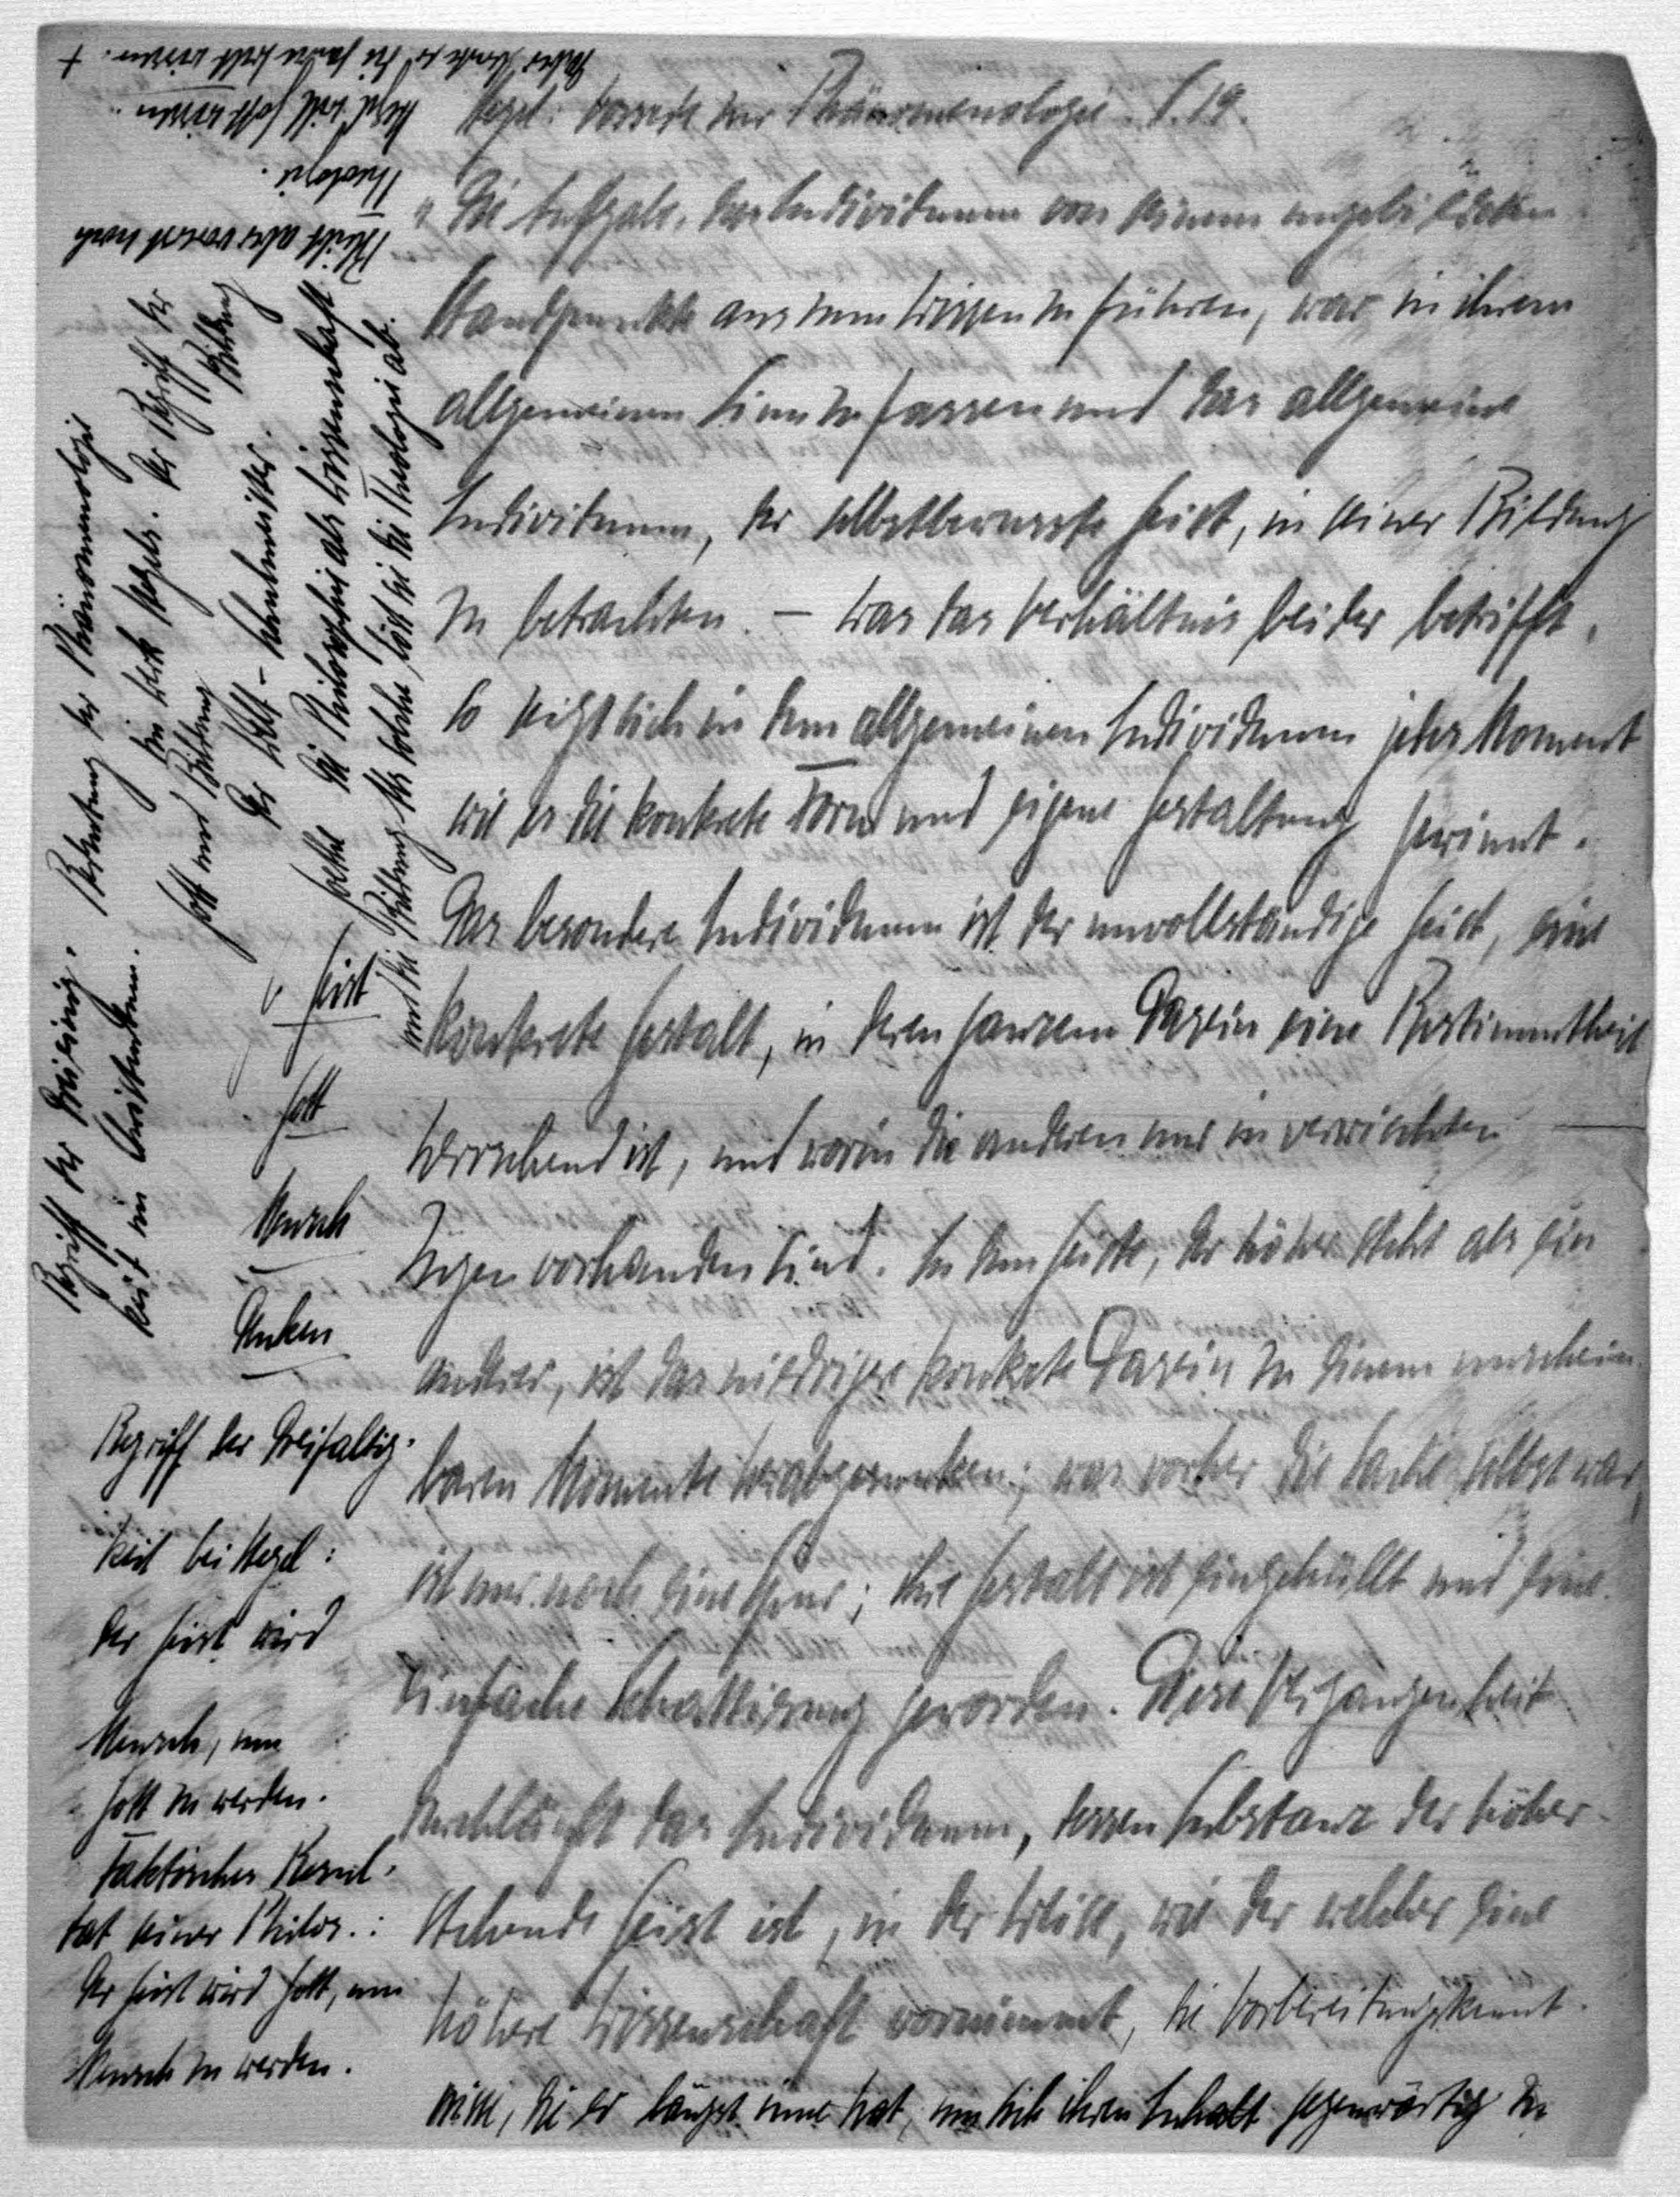 Hegel: Vorrede zur Phänomenologie. S. 19.
"Die Aufgabe, das Individuum von seinem ungebildeten
Standpunkte aus zum Wissen zu führen, war in ihrem
allgemeinen Sinn zu fassen und das allgemeine
Individuum, der selbstbewusste Geist, in seiner Bildung
zu betrachten. – Was das Verhältnis beider betrifft,
so zeigt sich in dem allgemeinen Individuum jedes Moment
wie es die konkrete Form und eigene Gestaltung gewinnt.
Das besondere Individuum ist der unvollständige Geist, eine
konkrete Gestalt, in deren ganzem Dasein eine Bestimmtheit
herrschend ist, und worin die anderen nur in verwischten
Zügen vorhanden sind. In dem Geiste, der höher steht als ein
anderer, ist das niedrigere konkrete Dasein zu einem unschein-
baren Momente herabgesunken; was vorher die Sache selbst war,
ist nur noch eine Spur; ihre Gestalt ist eingehüllt und eine
einfache Schattierung geworden. Diese Vergangenheit
durchläuft das Individuum, dessen Substanz der höher-
stehende Geist ist, in der Weise, wie der welcher eine
höhere Wissenschaft vornimmt, die Vorbereitungskennt-
nisse, die er längst inne hat, um sich ihren Inhalt gegenwärtig zu
Geist
Gott
Mensch
Denken
Begriff der Dreifaltig-
keit bei Hegel:
Der Geist wird
Mensch, um
Gott zu werden.
Faktisches Resul-
tat seiner Philos.:
Der Geist wird Gott, um
Mensch zu werden.
Begriff der Dreieinig-
keit im Christentum.
Bedeutung der Phänomenologie
im Werk Hegels. Der Begriff der
Bildung
Gott und Bildung
Der Welt-Schulmeister.
Solche die Philosophie als Wissenschaft
und die Bildung als solche, löst sie die Theologie ab.
Bleibt aber vorerst noch
Theologie.
Hegel will Gott wissen